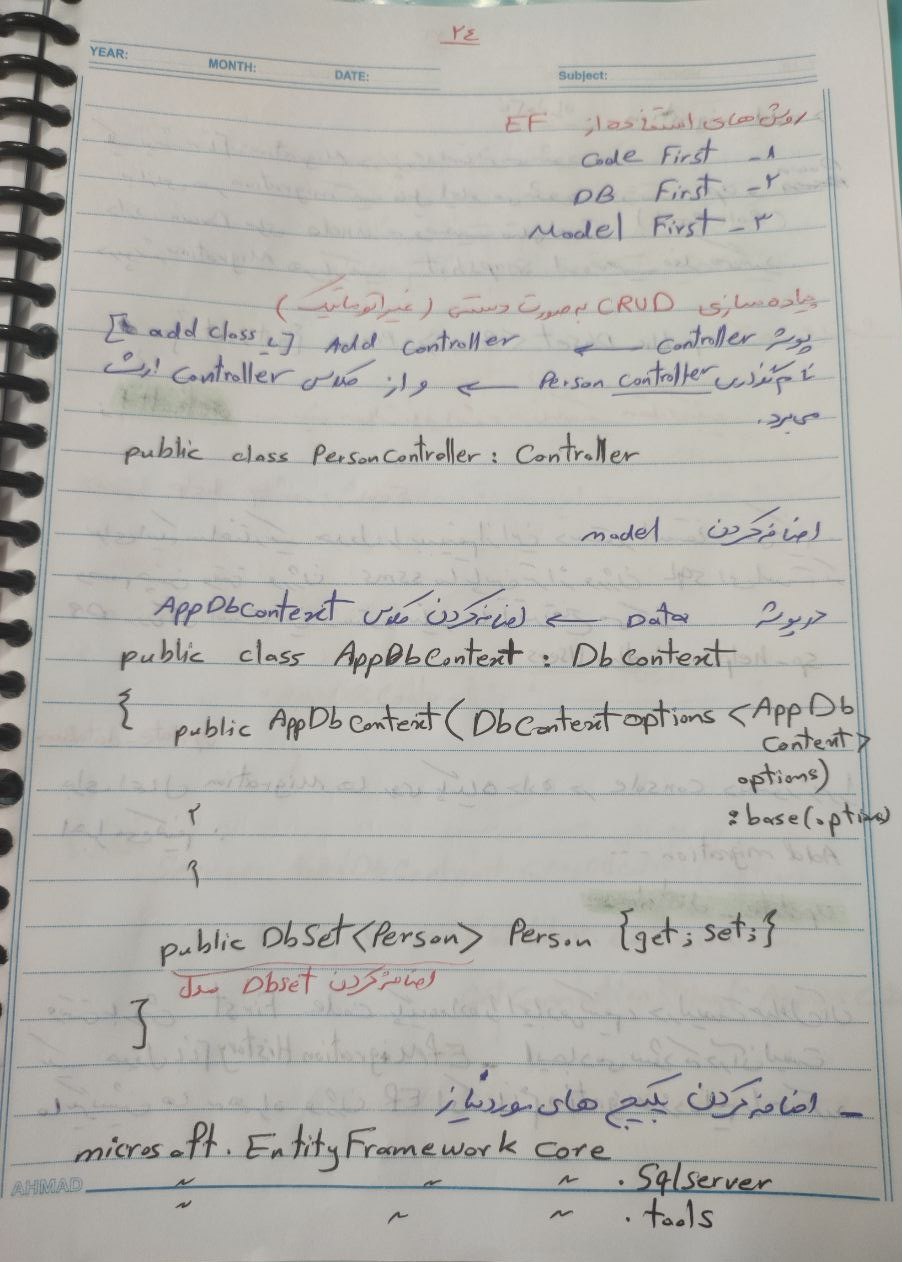 ۲۴
YEAR:
MONTH:
DATE:
Subject:
روش های استفاده از EF
۱- Code First
۲- DB First
۳- Model First
پیاده سازی CRUD بصورت دستی (غیراتوماتیک)
پوشه Controller ← Add Controller [یا add class]
نام گذاری Person Controller ← و از کلاس Controller ارث
می‌برد.
public class PersonController : Controller
اضافه کردن model
در پوشه Data ← اضافه کردن کلاس AppDbContext
public class AppDbContext : DbContext
{
public AppDbContext(DbContextoptions <AppDb
Context>
options)
:base(option)
{
}
public DbSet<Person> Person {get; set;}
اضافه کردن Dbset مدل
}
- اضافه کردن پکیج های مورد نیاز
microsoft. EntityFramework Core
~ ~ ~ . Sqlserver
~ ~ ~ . tools
AHMAD